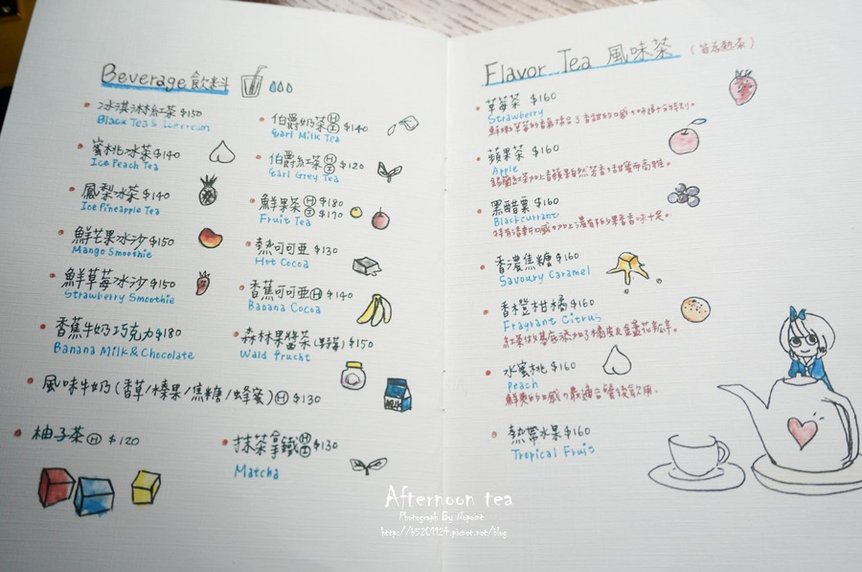 Beverage 飲料
冰淇淋紅茶 $150
Black Tea & Icecream
蜜桃冰茶 $140
Ice Peach Tea
鳳梨冰茶 $140
Ice Pineapple Tea
鮮芒果冰沙 $150
Mango Smoothie
鮮草莓冰沙 $150
Strawberry Smoothie
香蕉牛奶巧克力 $180
Banana Milk & Chocolate
風味牛奶(香草/榛果/焦糖/蜂蜜) Ⓗ $130
柚子茶 Ⓗ $120
伯爵奶茶 Ⓗ Ⓘ $140
Earl Milk Tea
伯爵紅茶 Ⓗ Ⓘ $120
Earl Grey Tea
鮮果茶 Ⓗ $180 Ⓘ $170
Fruit Tea
熱可可亞 $130
Hot Cocoa
香蕉可可亞 Ⓗ $140
Banana Cocoa
森林果醬茶 $150
Wald frucht
抹茶拿鐵 Ⓗ Ⓘ $130
Matcha
MILK
Flavor Tea 風味茶 (皆為熱茶)
草莓茶 $160
Strawberry
蘋果茶 $160
Apple
黑醋栗 $160
Blackcurrant
香濃焦糖 $160
Savoury Caramel
香橙柑橘 $160
Fragrant Citrus
水蜜桃 $160
Peach
熱帶水果 $160
Tropical Fruit
Afternoon tea
Photograph By Nopoint